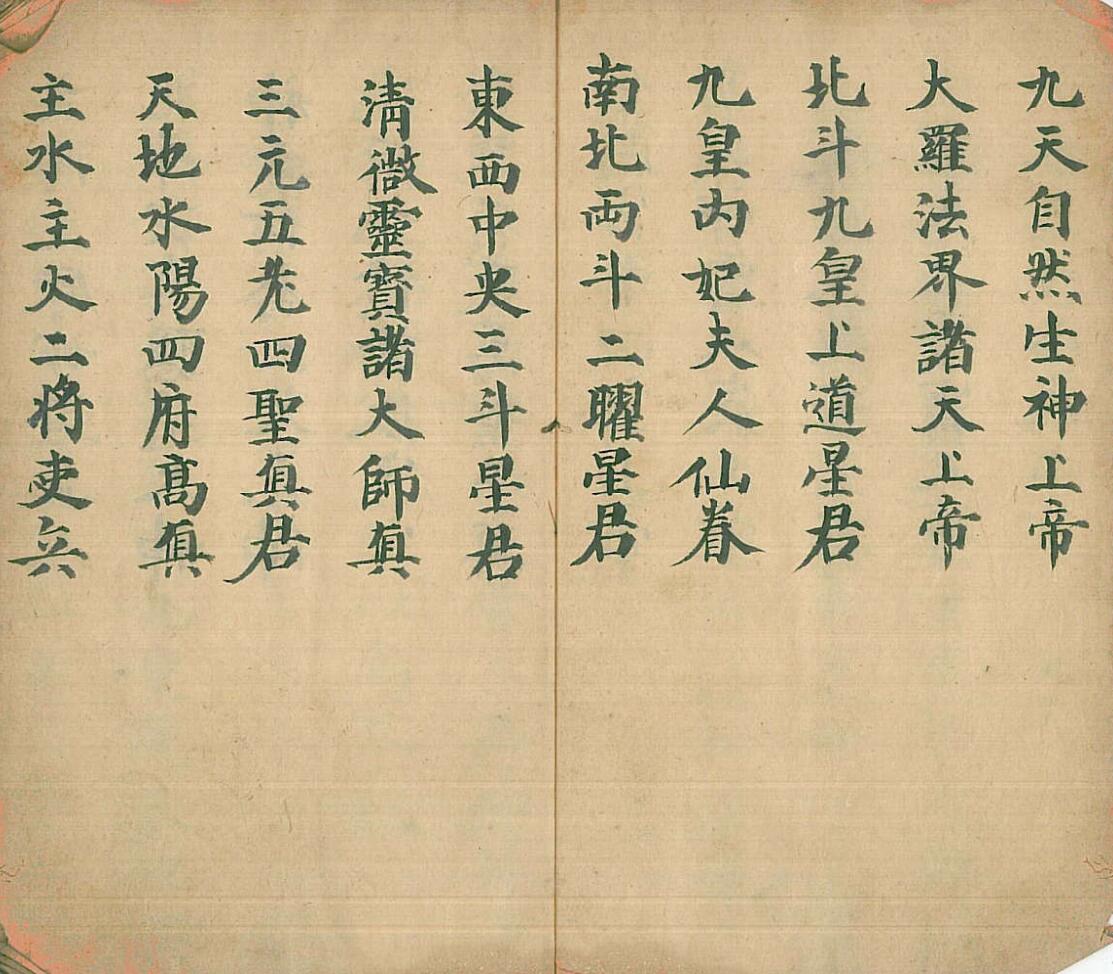 九天自然生神上帝
大羅法界諸天上帝
北斗九皇上道星君
九皇內妃夫人仙眷
南北両斗二曜星君
東西中央三斗星君
清微靈寶諸大師真
三元五老四聖真君
天地水陽四府高真
主水主火二将吏兵